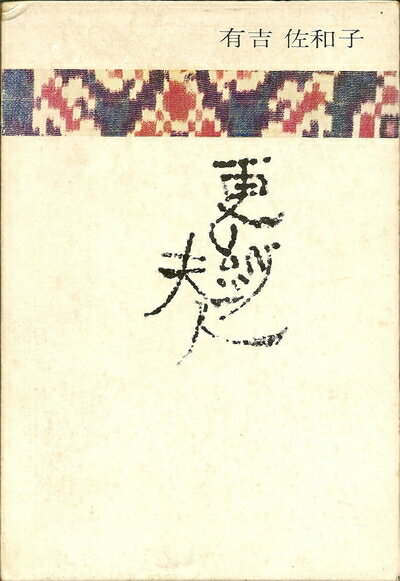 有吉 佐和子
更紗
夫人